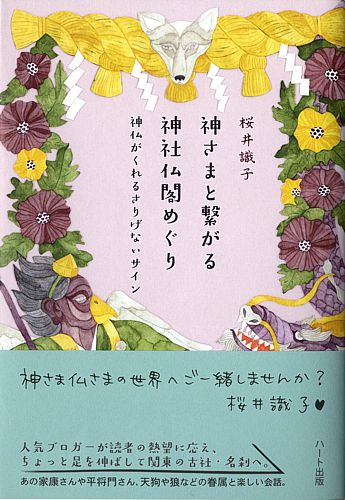 桜井識子
神さまと繋がる
神社仏閣めぐり
神仏がくれるさりげないサイン
神さま仏さまの世界へご一緒しませんか?
桜井識子♥
人気ブロガーが読者の熱望に応え、
ちょっと足を伸ばして関東の古社・名刹へ。
あの家康さんや平将門さん、天狗や狼などの眷属と楽しい会話。
ハート出版